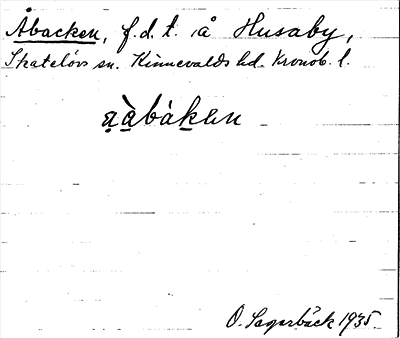 Åbacken, f.d.t. å Husaby,
Skatelövs sn. Kinnevalds hd. Kronob. l.
a̤à̤bákɛn
O. Lagerbäck 1935